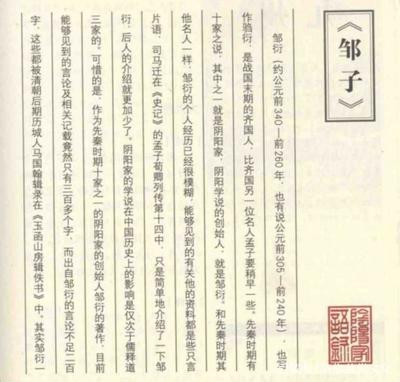 《邹子》
陰陽家
語錄
邹衍（约公元前340—前260年，也有说公元前305—前240年），也写
作驺衍，是战国末期的齐国人，比齐国另一位名人孟子要稍早一些。先秦时期有
十家之说，其中之一就是阴阳家，阴阳学说的创始人，就是邹衍。和先秦时期其
他名人一样，邹衍的个人经历已经很模糊，能够见到的有关他的资料都是些只言
片语，司马迁在《史记》的孟子荀卿列传第十四中，只是简单地介绍了一下邹
衍，后人的介绍就更加少了。阴阳家的学说在中国历史上的影响是仅次于儒释道
三家的。可惜的是，作为先秦时期十家之一的阴阳家的创始人邹衍的著作，目前
能够见到的言论及相关记载竟然只有三百多个字，而出自邹衍的言论不足二百
字，这些都被清朝后期历城人马国翰辑录在《玉函山房辑佚书》中。其实邹衍一